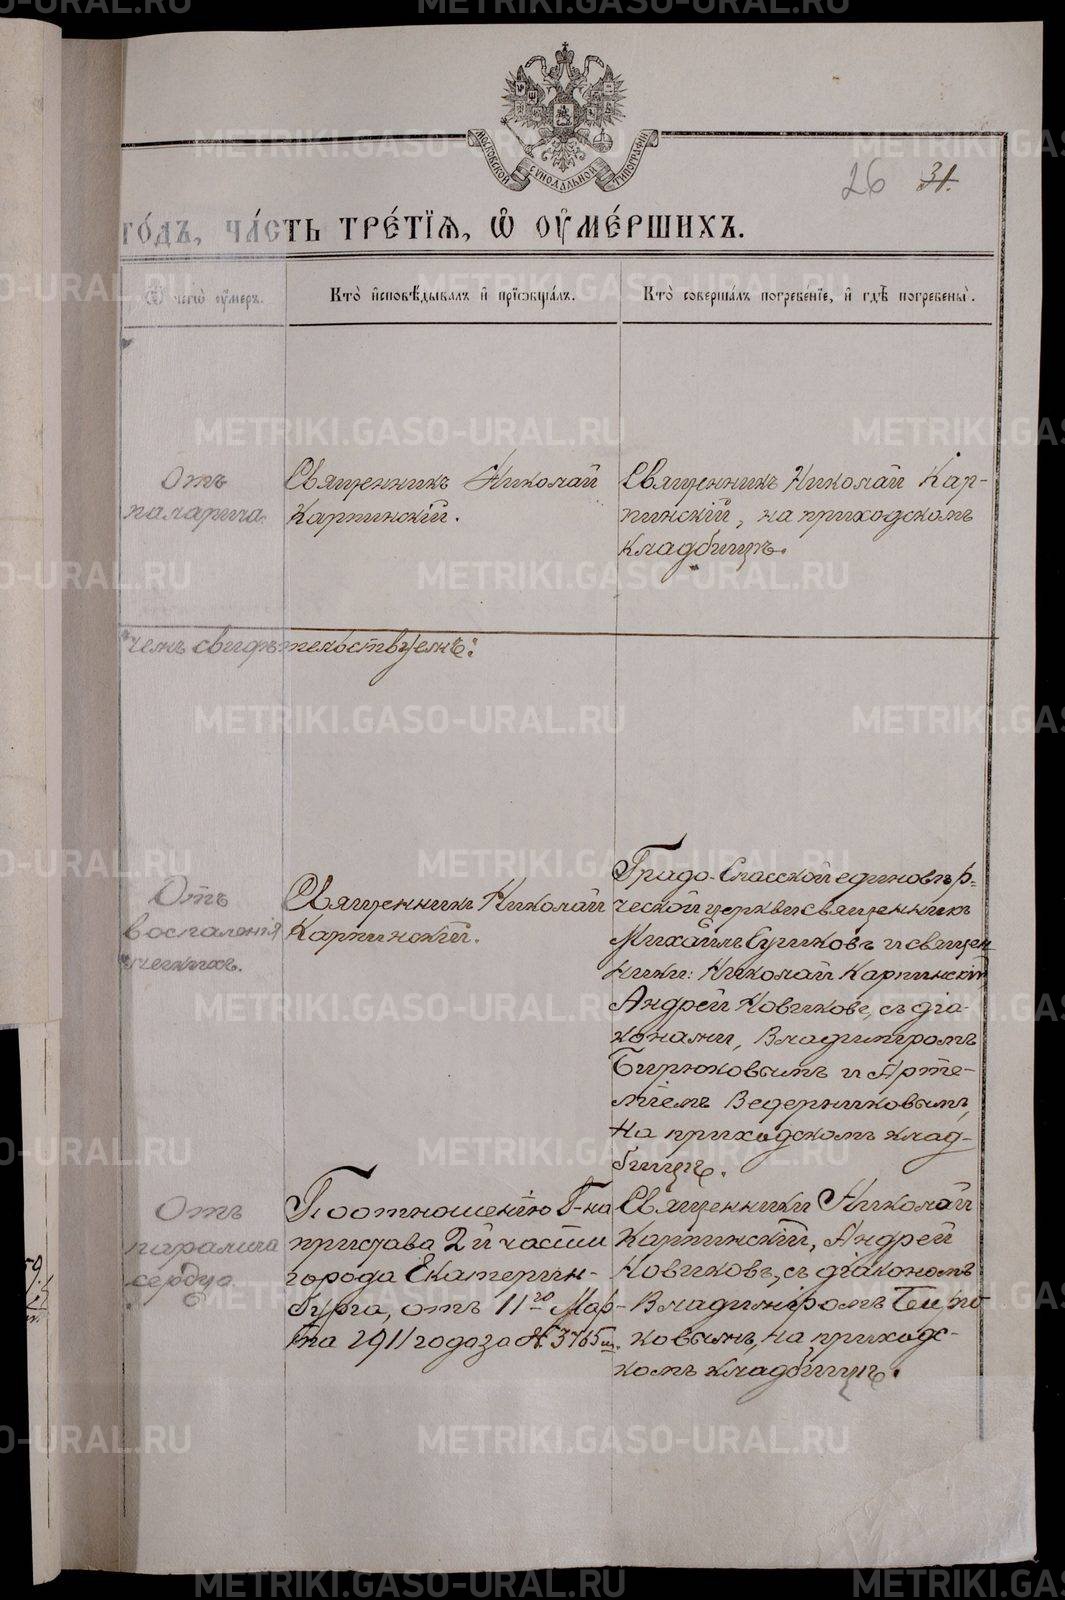 МОСКОВСКОЙ СѴНОДАЛЬНОЙ ТИПОГРАФІИ
26 31.
го́дъ, ча́сть тре́тїѧ, ѡ҆ ᲂу҆ме́ршихъ.
Ѿ чегѡ̀ ᲂу҆меръ.
Кто̀ и҆сповѣ́дывалъ и҆ прїѡбща́лъ.
Кто̀ соверша́лъ погребе́нїе, и҆ гдѣ̀ погребены̀.
Отъ
паралича.
Священникъ Николай
Карпинскій.
Священникъ Николай Кар-
пинскій, на приходскомъ
кладбищѣ.
чемъ свидѣтельствуемъ:
Отъ
воспаленія
легкихъ.
Священникъ Николай
Карпинскій.
Градо-Спасской единовѣр-
ческой церкви священникъ
Михаилъ Сушковъ и священ
ники: Николай Карпинскій
Андрей Новиковъ, съ діа-
конами, Владиміромъ
Бирюковымъ и Арте-
міемъ Ведерниковымъ,
на приходскомъ клад-
бищѣ.
Отъ
паралича
сердца.
По отношенію Г-на
пристава 2й части
города Екатерин-
бурга, отъ 11го Мар-
та 1911 года за № 3765
Священники Николай
Карпинскій, Андрей
Новиковъ, съ діакономъ
Владиміромъ Бирю
ковымъ, на приходс-
комъ кладбищѣ.
METRIKI.GASO-URAL.RU